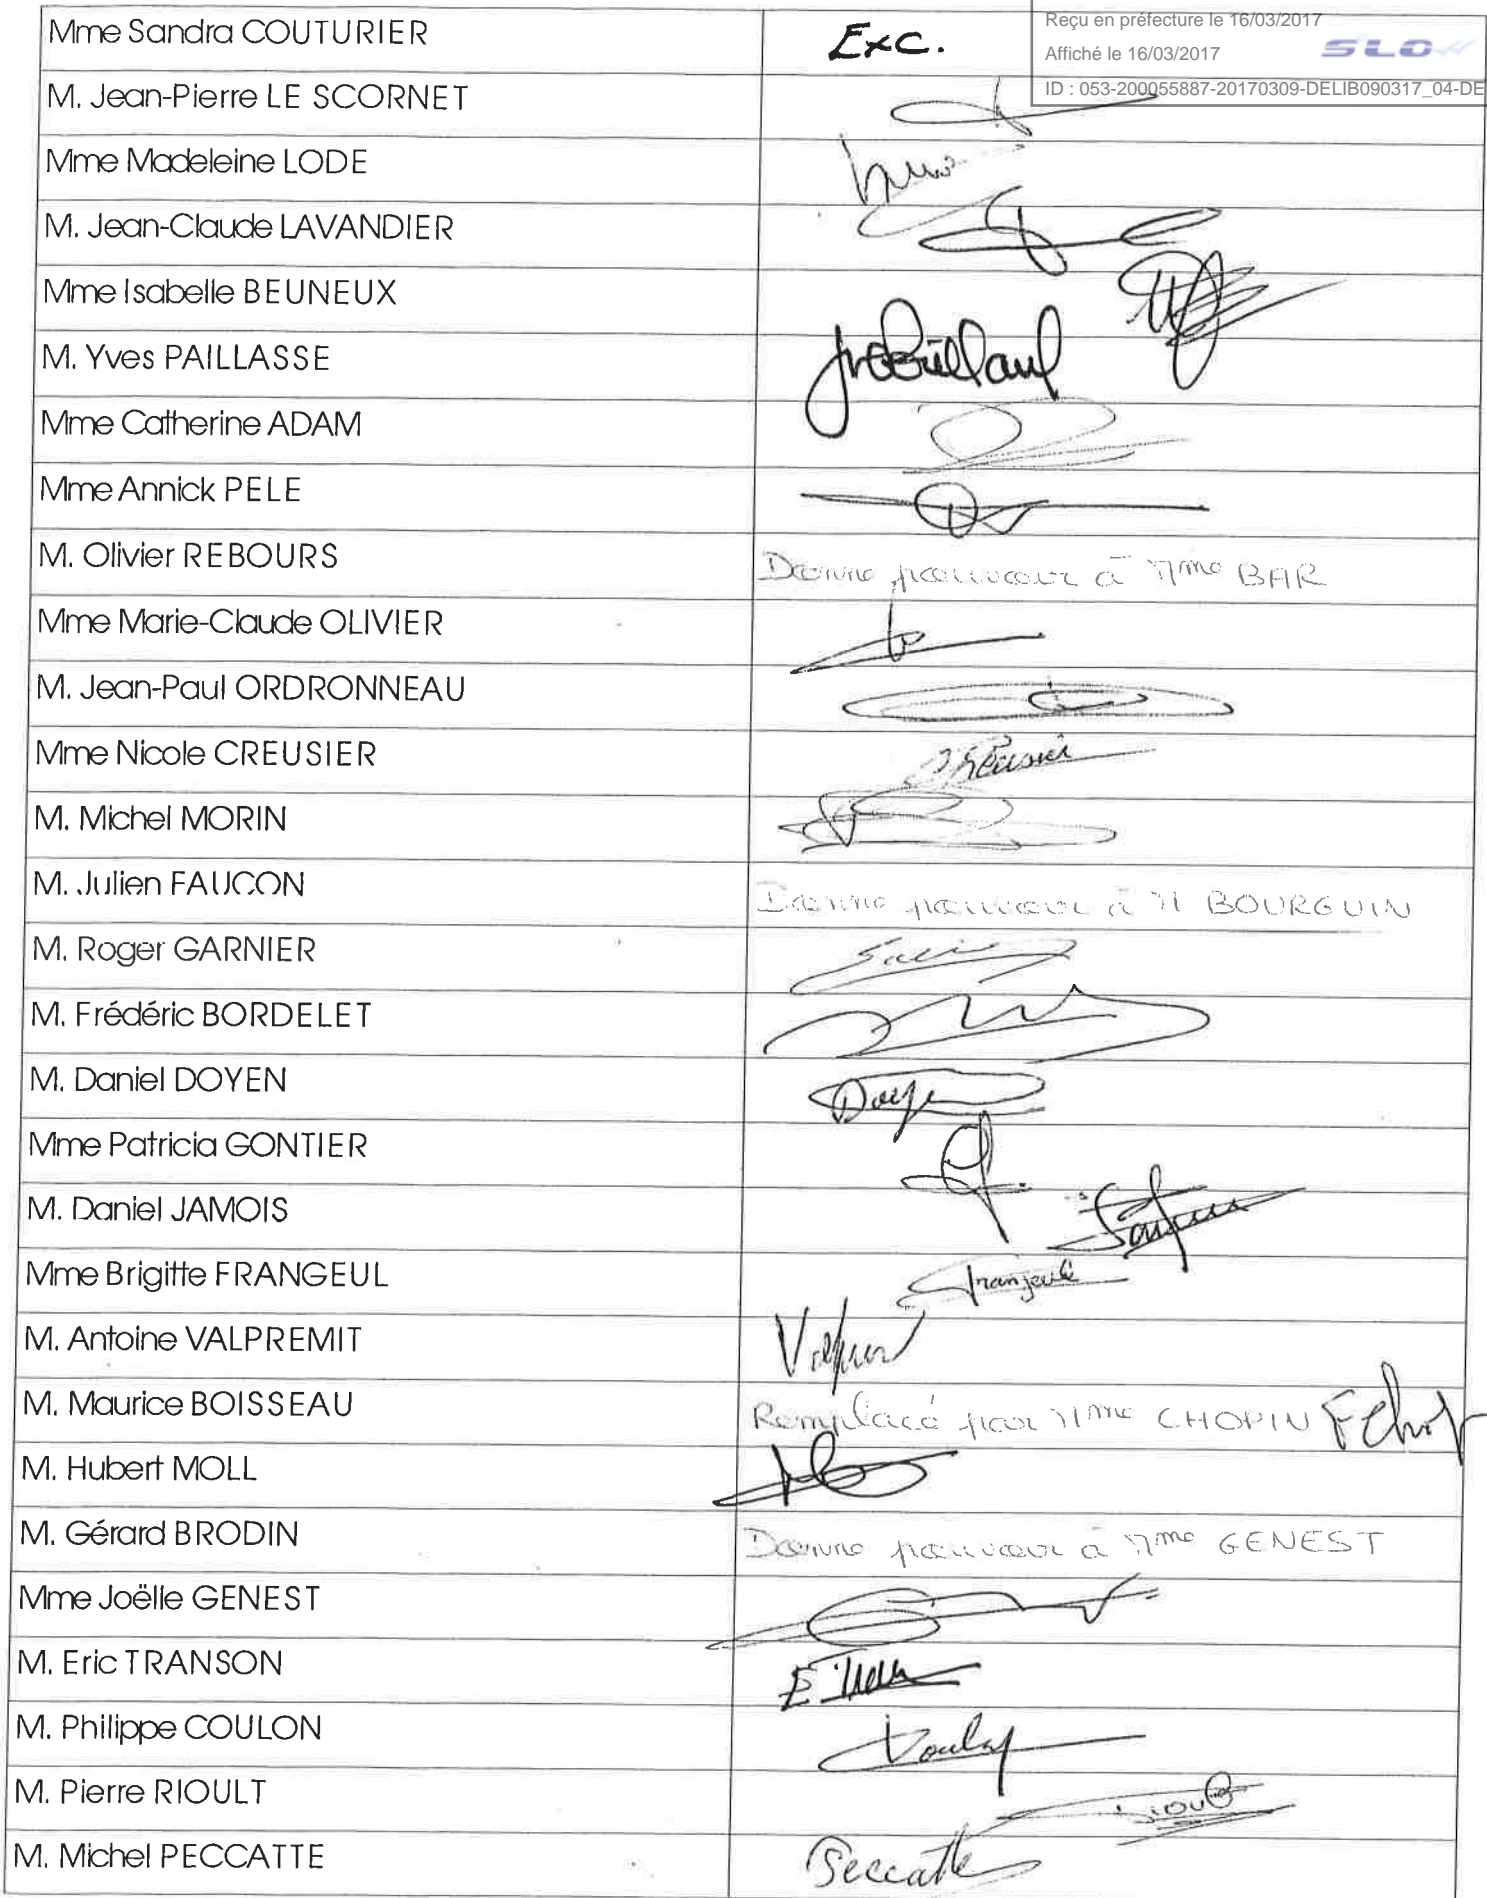 Reçu en préfecture le 16/03/2017
Affiché le 16/03/2017
SLOW
ID : 053-200055887-20170309-DELIB090317_04-DE
Mme Sandra COUTURIER Exc.
M. Jean-Pierre LE SCORNET
Mme Madeleine LODE
M. Jean-Claude LAVANDIER
Mme Isabelle BEUNEUX
M. Yves PAILLASSE
Mme Catherine ADAM
Mme Annick PELE
M. Olivier REBOURS Donne pouvoir à Mme BAR
Mme Marie-Claude OLIVIER
M. Jean-Paul ORDRONNEAU
Mme Nicole CREUSIER Creusier
M. Michel MORIN
M. Julien FAUCON Donne pouvoir à M BOURGUIN
M. Roger GARNIER
M. Frédéric BORDELET
M. Daniel DOYEN Doyen
Mme Patricia GONTIER
M. Daniel JAMOIS
Mme Brigitte FRANGEUL Frangeul
M. Antoine VALPREMIT
M. Maurice BOISSEAU Remplacé par Mme CHOPIN
M. Hubert MOLL
M. Gérard BRODIN Donne pouvoir à Mme GENEST
Mme Joëlle GENEST
M. Eric TRANSON
M. Philippe COULON
M. Pierre RIOULT
M. Michel PECCATTE Peccatte